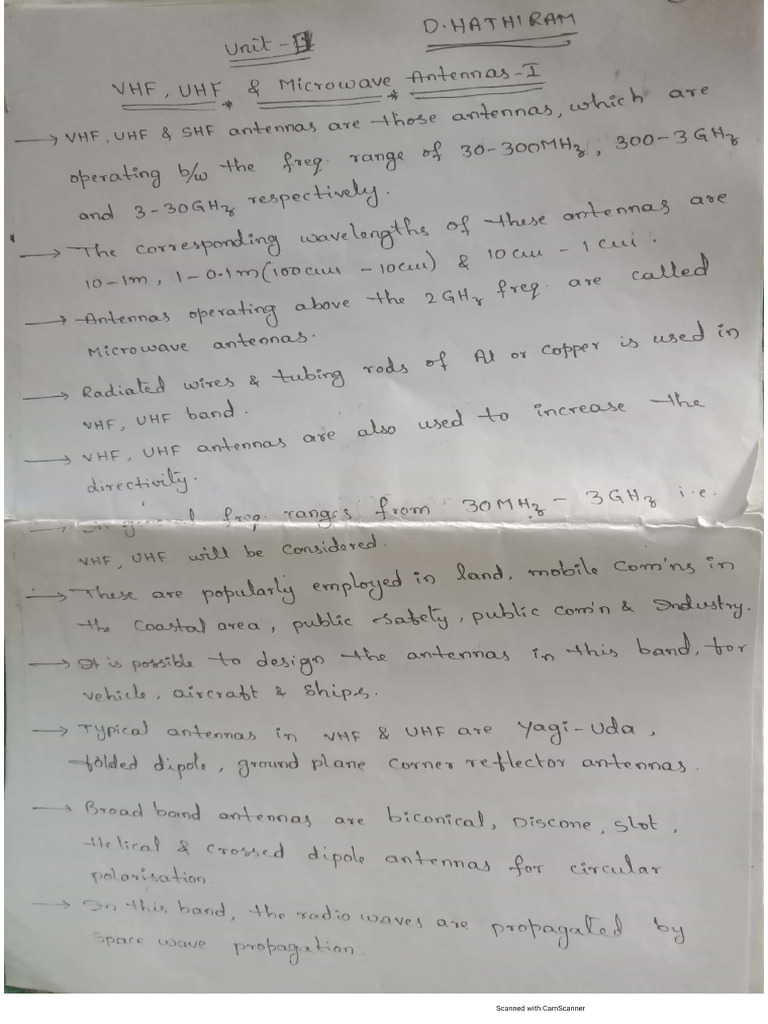 D.HATHIRAM
Unit -
VHF, UHF & Microwave Antennas - I
→ VHF, UHF & SHF antennas are those antennas, which are
operating b/w the freq. range of 30-300MHz, 300-3GHz
and 3-30GHz respectively.
→ The corresponding wavelengths of these antennas are
10-1m, 1-0.1m(100cm -10cm) & 10cm - 1cm.
→ Antennas operating above the 2GHz freq. are called
Microwave antennas.
→ Radiated wires & tubing rods of Al or copper is used in
VHF, UHF band.
→ VHF, UHF antennas are also used to increase the
directivity.
→ In general freq. ranges from 30MHz - 3GHz i.e.
VHF, UHF will be considered.
→ These are popularly employed in land, mobile com'ns in
the coastal area, public safety, public com'n & Industry.
→ It is possible to design the antennas in this band, for
vehicle, aircraft & ships.
→ Typical antennas in VHF & UHF are Yagi-Uda,
folded dipole, ground plane corner reflector antennas.
→ Broad band antennas are biconical, Discone, slot,
Helical & crossed dipole antennas for circular
polarisation.
→ In this band, the radio waves are propagated by
space wave propagation.
Scanned with CamScanner